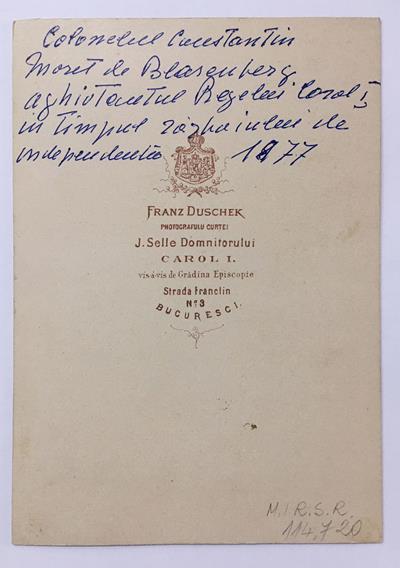 Colonelul Constantin
Moret de Blaremberg
aghiotantul Regelui Carol I,
in timpul războiului de
independentă 1877
FRANZ DUSCHEK
PHOTOGRAFULU CURTEI
J. Selle Domnitorului
CAROL I.
vis-à-vis de Grădina Episcopie
Strada Franclin
No 3
BUCURESCI.
M.I.R.S.R.
114,720